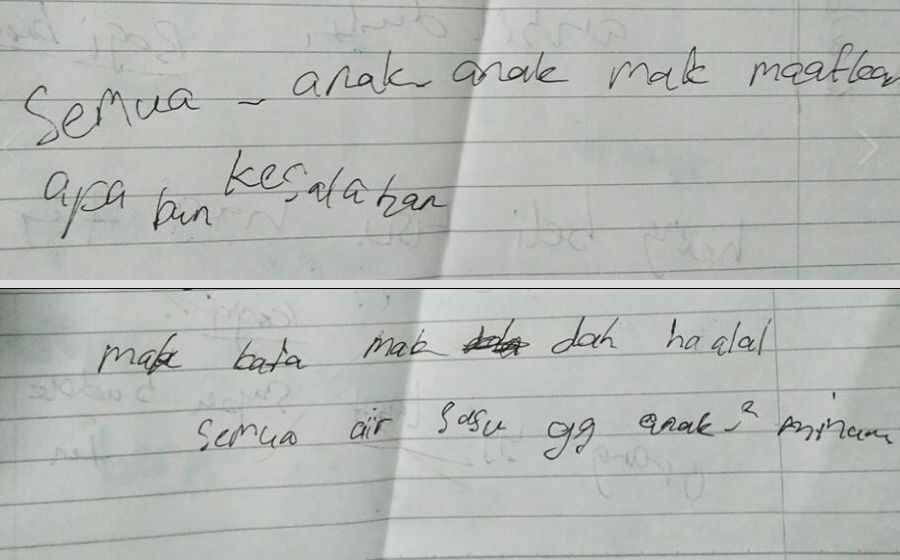 Semua - anak anak mak maafkan
apa pun kesalahan
mak kata mak dah haalal
semua air susu yg anak-2 minum